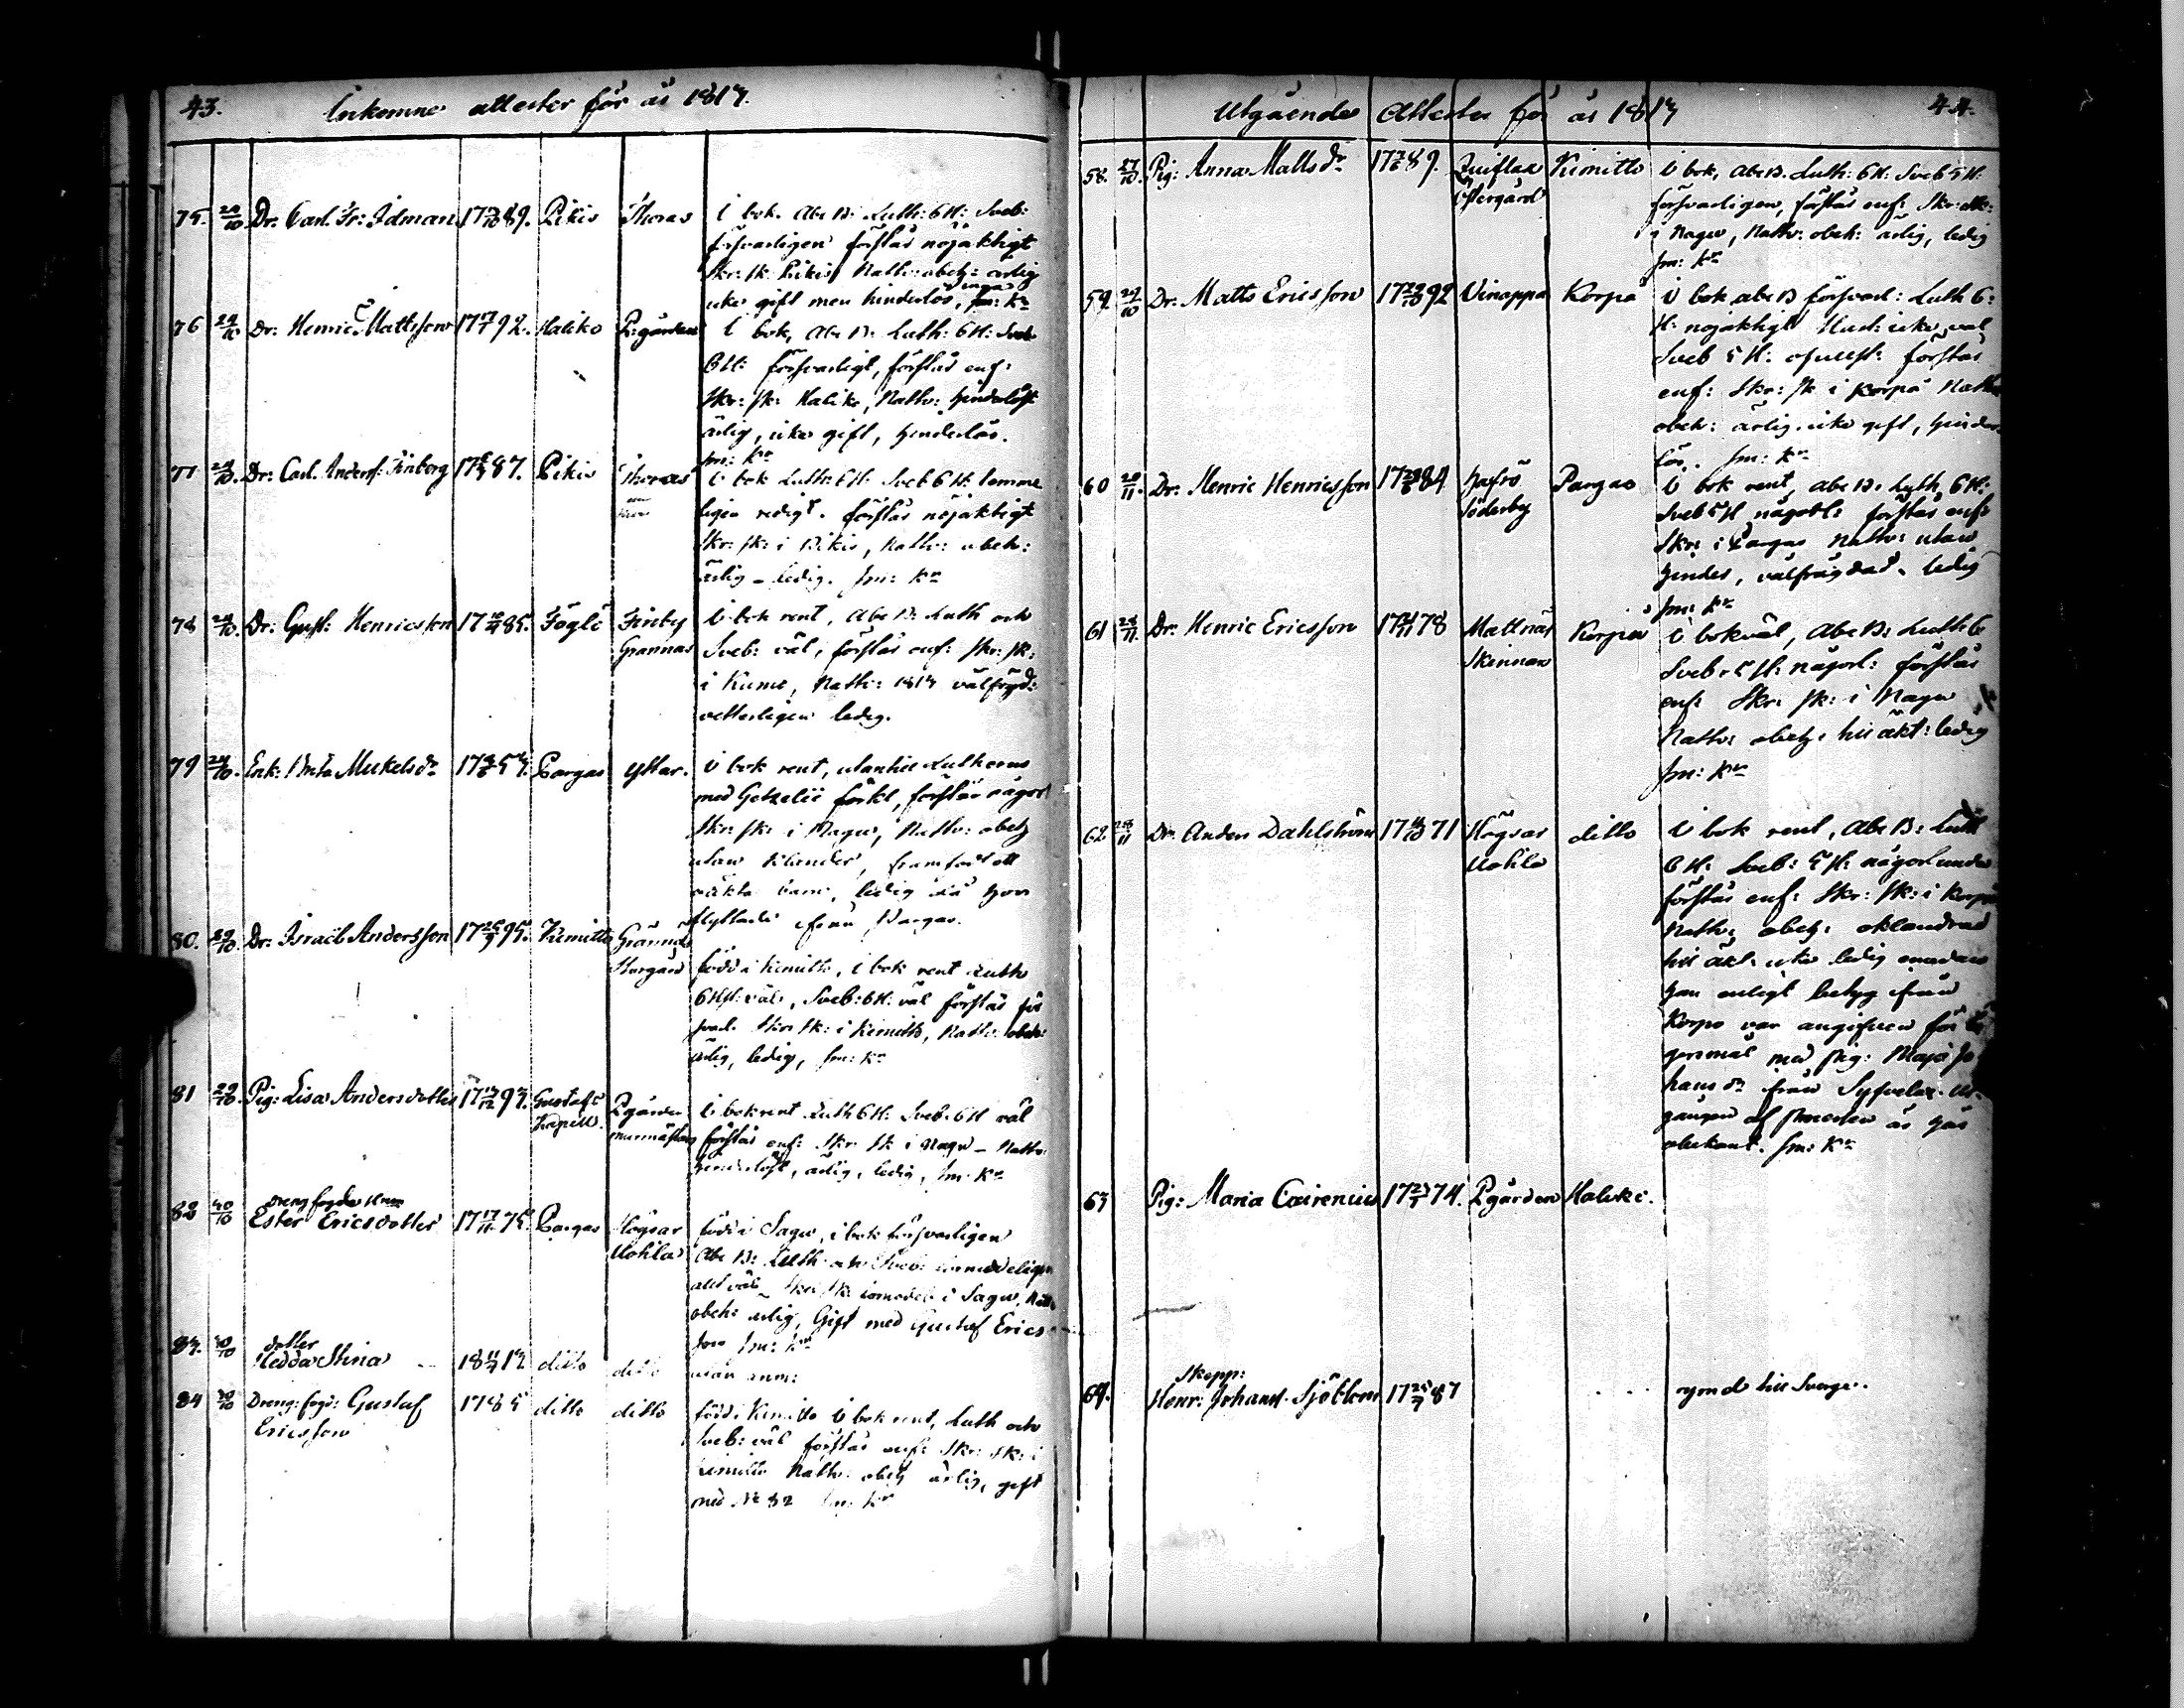 43. Inkomne attester för år 1817.
75. 20/10 Dr: Carl Fr: Idman 17 /10 89. Pikis Thoras
I bok. Abc B: Luth: 6 H: Sveb:
försvarligen förstår nöjaktigt
Skr: sk: Pikis Nattv: obeh: ärlig
icke gift men hinderlös, fm: Kr
76 29/10 Dr: Henric Mattsson 17 17/7 92. Haliko P:gården
I bok, Abc B: Luth: 6 H: Sveb
6 H: försvarligt, förstår enf:
Skr: sk: Haliko, Nattv: hinderlöst
ärlig, icke gift, hinderlös.
fm: Kr
77 29/10. Dr: Carl Anderss: Finberg 17 87. Pikis Thoras
I bok Luth: 6 H: Sveb 6 H: temme
ligen redigt. förstår nöjaktigt
Skr: sk: i Pikis, Nattv: obeh:
ärlig - ledig. fm: Kr
78 29/10. Dr: Gust: Henricsson 17 85. Föglö Finby
Grannas
I bok rent, Abc B: Luth och
Sveb: väl, förstår enf: skr: sk:
i Kumo, Nattv: 1817 välfrägd:
vetterligen ledig.
79 29/10. Enk: Brita Mickelsdr 17 57. Pargas Yttar.
I bok rent, utantill Lutherus
med Gezelii förkl, förstår någorl
Skr: sk: i Nagu, Nattv: obeh
utan klander, framfödt ett
oäkta barn, ledig då hon
flyttade ifrån Pargas.
80. 29/10. Dr: Israël Andersson 17 26/9 95. Kimitto Grännäs
Storgård
född i Kimitto, i bok rent Luth
6 H: väl, Sveb: 6 H: väl förstår för
svarl. Skr: sk: i Kimitto, Nattv: obeh:
ärlig, ledig, fm: Kr
81 29/10. Pig: Lisa Andersdotter 17 /12 97. Gustafs
Kapell. P:gården
murmästars
I bok rent Luth 6 H: Sveb: 6 H väl
förstår enf: Skr: sk i Nagu - Nattv:
hinderlöst, ärlig, ledig, fm: Kr
82 30/10 Drengfogde Hustr
Ester Ericsdotter 17 17/11 75. Pargas Högsar
Mohla
född i Sagu, i bok försvarligen
Abc B: Luth och Sveb: omedeligen
allt väl, Skr: sk: i Sagu, Nattv
obeh: ärlig, Gift med Gustaf Erics
son fm: Kr
83. 30/10 dotter
Hedda Stina 18 11/7 17 ditto ditto utan anm:
84 30/10 Dreng: fogd: Gustaf
Ericsson 1785 ditto ditto
född i Kimitto I bok rent, Luth och
Sveb: väl förstår enf: Skr: sk: i
Kimitto Nattv: obeh ärlig, gift
med No 82 fm: Kr
Utgående Attester för år 1817 44.
58. 27/10. Pig: Anna Mattsdr 17 /6 89. Östergård Kimitto
I bok, Abc B. Luth: 6 H: Sveb 5 H:
försvarligen, förstår enf: Skr: sk:
i Nagu, Nattv: obeh: ärlig, ledig
fm: Kr
59. 29/10 Dr: Matts Ericsson 17 29/10 92 Winappa Korpo
I bok Abc B försvarl: Luth 6:
H: nöjaktigt Hust: icke väl
Sveb 5 H: ofullst: förstår
enf: Skr: sk i Korpo Nattv
obeh: ärlig. icke gift, hinder
lös.. fm: Kr
60 20/11. Dr: Henric Henricsson 17 /6 84 Hafsö
Söderby Pargas
I bok rent, Abc B. Luth 6 H:
Sveb 5 H någorl: förstår enf:
Skr: i Pargas Nattv: utan
hinder, välfrägdad, ledig
fm: Kr
61 28/11. Dr: Henric Ericsson 17 21/11 78 Mattnäs
Skinnars Korpo
I bok väl, Abc B: Luth 6
Sveb: 5 H: någorl: förstår
enf: Skr: sk: i Nagu
Nattv: obeh: till äkt: ledig
fm: Kr
62. 28/11 Dr: Anders Dahlström 17 /10 71 Högsar
Mohla ditto
I bok rent, Abc B: Luth
6 H: Sveb: 5 H: någorlunda
förstår enf: Skr: sk: i Korpo
Nattv: obeh: oklandrad
till äkt. icke ledig emedan
han enligt betyg ifrån
Korpo var angifven för läg
gersmål med pig: Maja Jo
hansdr från Syfvelax. Ut-
gången af saken är här
obekant. fm: Kr
63 Pig: Maria Cairenius 17 23/7 74. P:gården Haliko.
64. Skepp:
Henr: Johans. Sjöblom 17 25/7 87 rymd till Sverge.